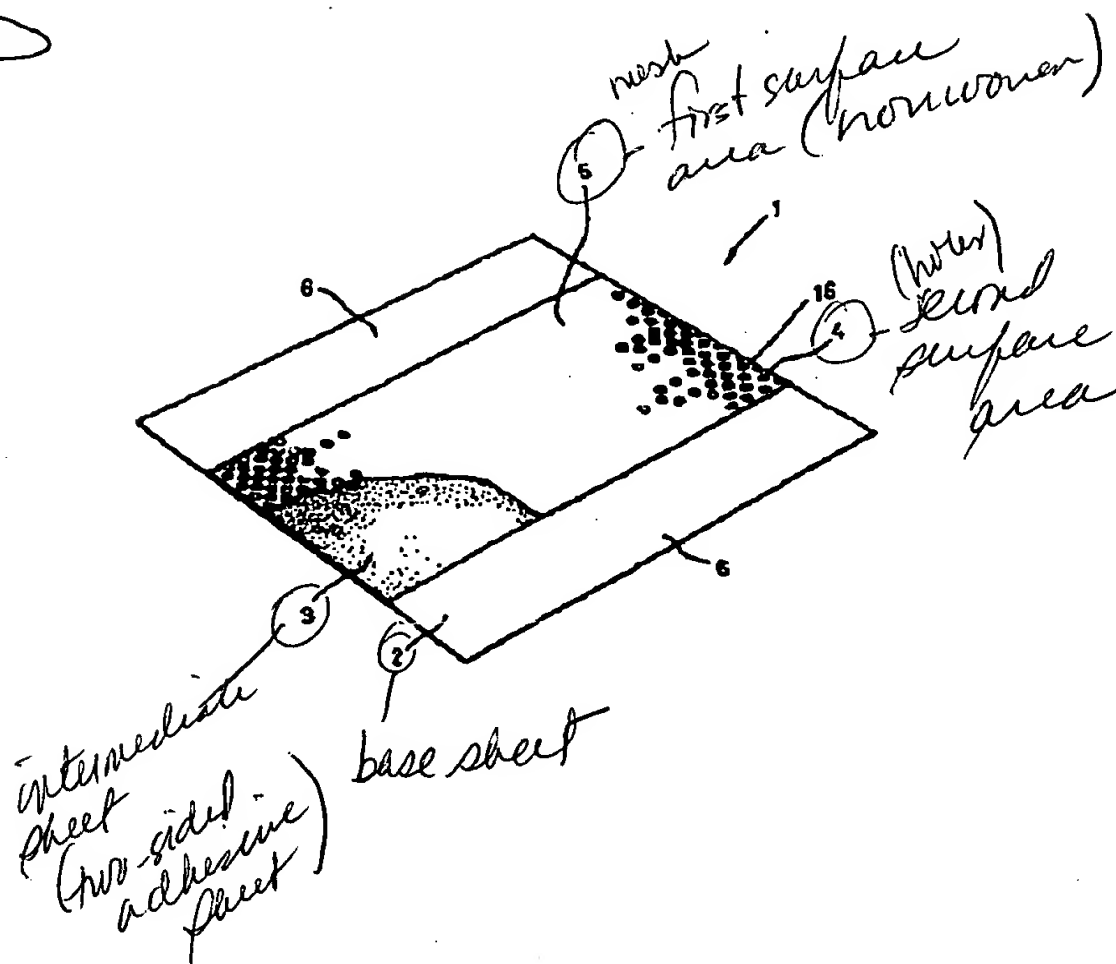 mesh
first surface
area (nonwoven)
5
1
(holes)
second
surface
area
6
16
4
6
3
2
intermediate
sheet
(two-sided
adhesive
sheet)
base sheet